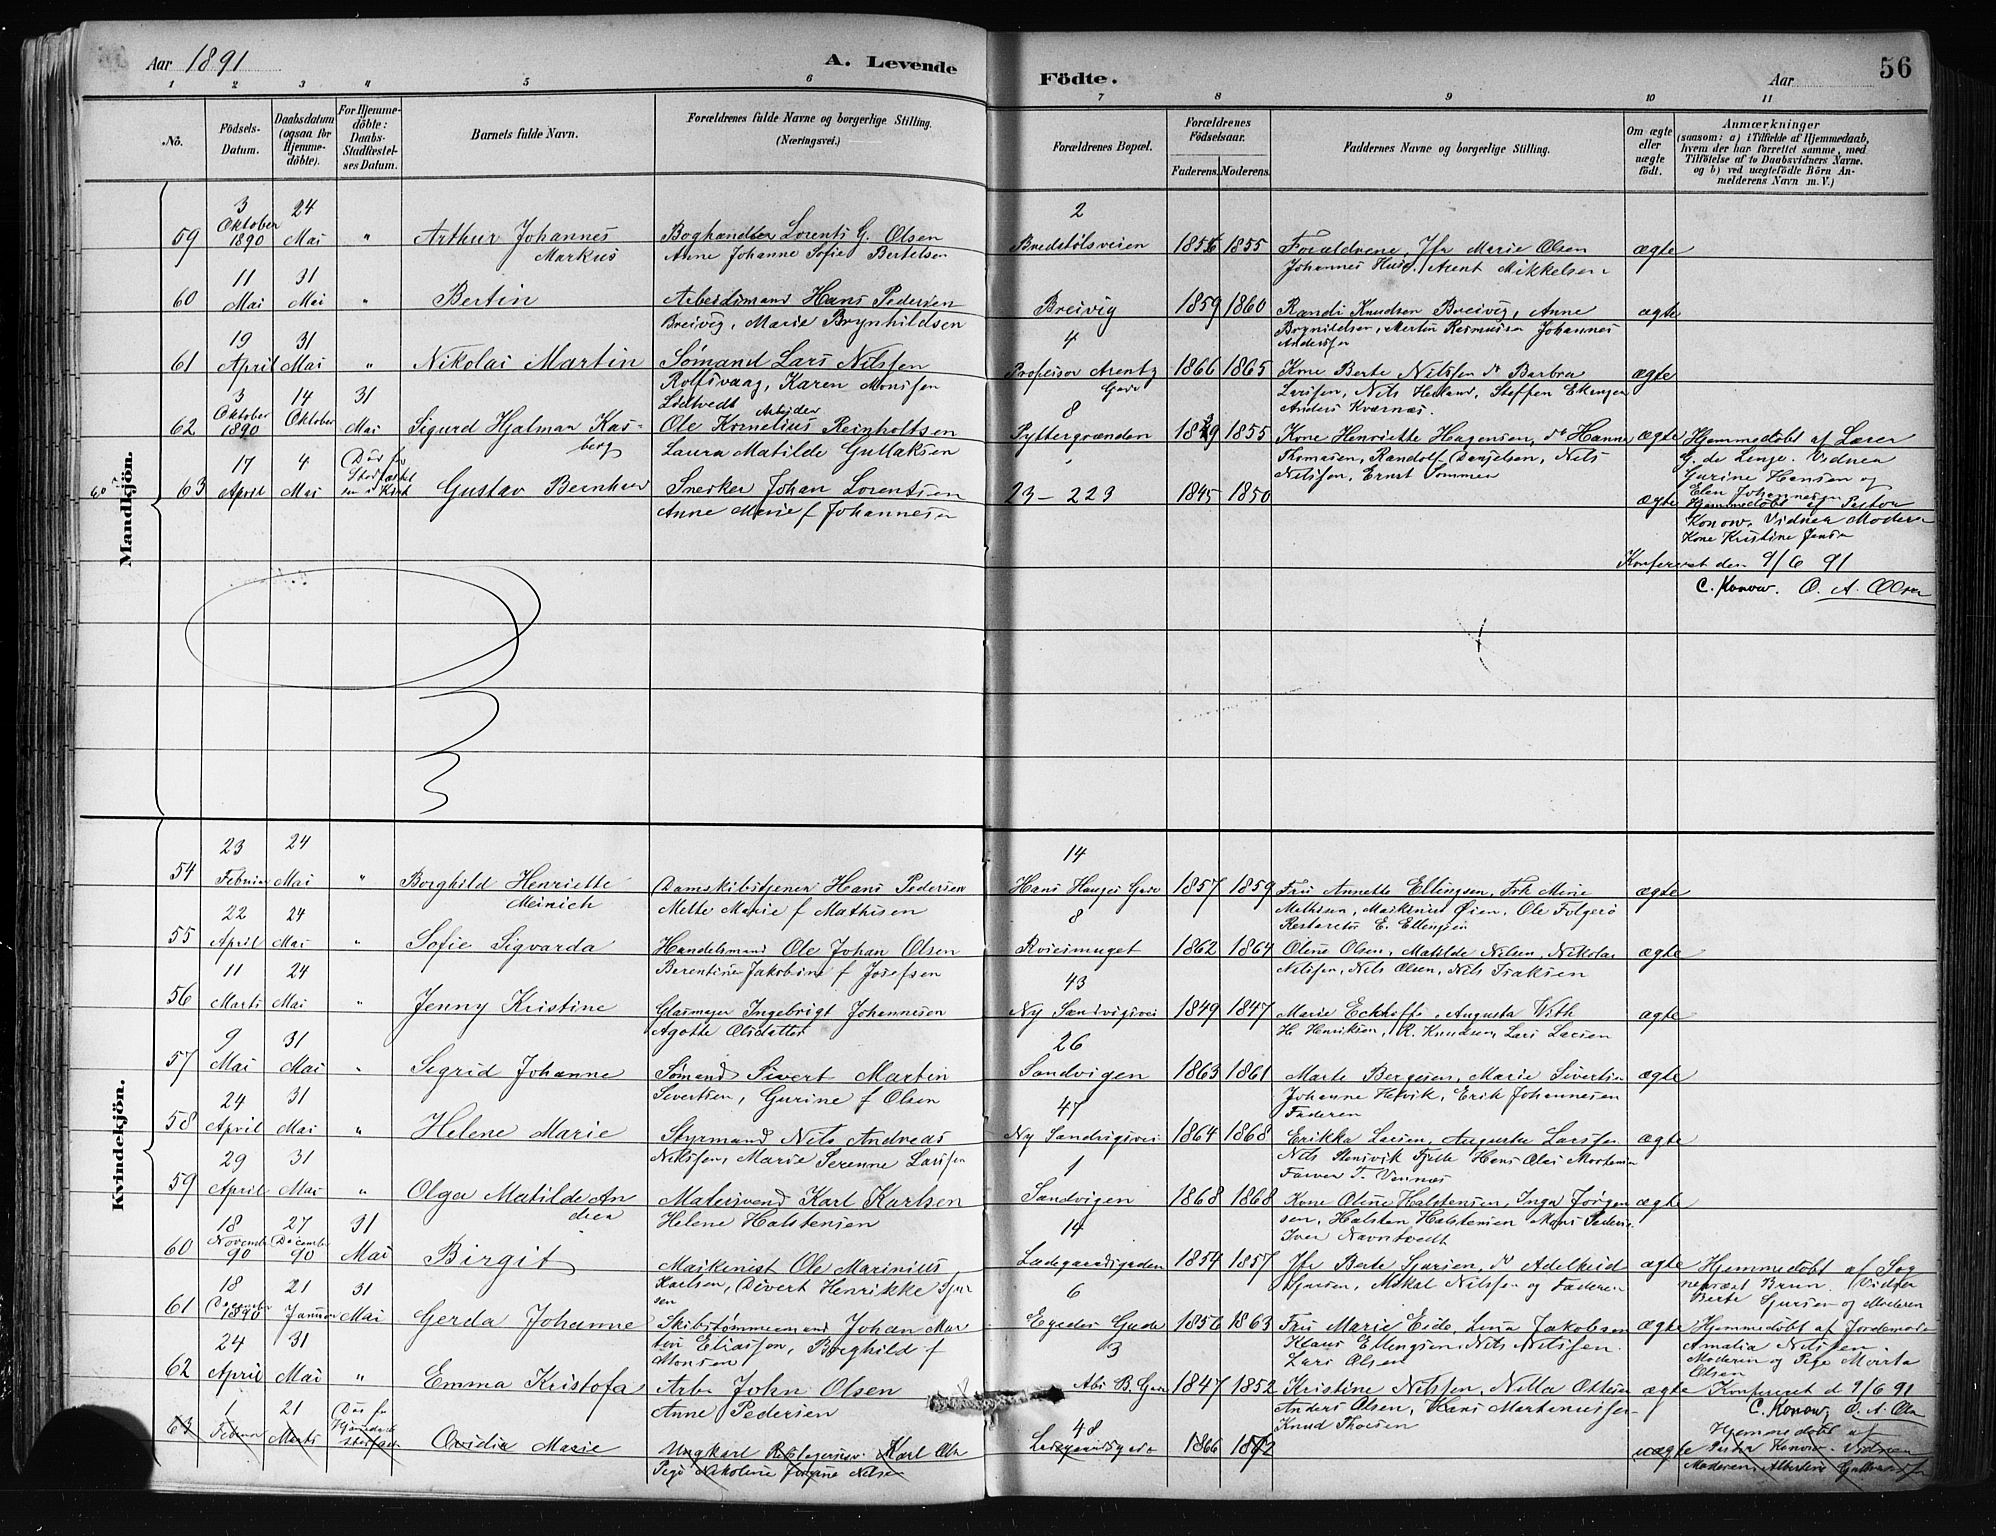 Aar 1891
A. Levende
Födte.
Aar
56
1 2 3 4 5 6 7 8 9 10 11
No.
Födsels-Datum.
Daabsdatum (ogsaa for Hjemme-döbte).
For Hjemme-döbte: Daabs-Stadfæstel-ses Datum.
Barnets fulde Navn.
Forældrenes fulde Navne og borgerlige Stilling. (Næringsvei.)
Forældrenes Bopæl.
Forældrenes Födselsaar.
Faderens. Moderens.
Faddernes Navne og borgerlige Stilling.
Om ægte eller uægte födt.
Anmærkninger
(saasom: a) i Tilfælde af Hjemmedaab, hvem der har forrettet samme, med Tilföielse af to Daabsvidners Navne. og b) ved uægtefödte Börn An-melderens Navn m. V.)
Mandkjön.
59 3 Oktober 1890 24 Mai " Arthur Johannes Markus
Boghandler Lorents G. Olsen
Anne Johanne Sofie Bertelsen
2 1855 Forældrene, Jfr Marie Olsen ægte
Johannes Arent Mikkelsen
60 11 Mai 31 Mai " Bertin
Arbeidsmand Hans Pedersen
Breivig, Marie Brynhildsen
Breivig 1859 1860 Randi Knudsen Breivig, Anne ægte
Brynildsen, Martin Rasmussen Johannes
Anderssen
61 19 April 31 Mai " Nikolai Martin
Sømand Lars Nilssen
Rolfsvaag, Karen Monssen
Lødtvedt
4 Professor Arentz Gade 1866 1865 Kone Berte Nilssen Barbra ægte
Larssen, Nils Steffen
Anders Kværnæs.
62 3 Oktober 1890 14 Oktober 31 Mai Sigurd Hjalmar Kasberg
Arbeider
Ole Kornelius Reinholtsen
Laura Matilde Gullaksen
8 Pyttergrænden 1855 Kone Henriette Haagensen, Hanne ægte
Thomasen, Randolf Danielsen, Nils
Nilssen, Ernst Sommer
Hjemmedöbt af Lærer
G. de Lange. Vidner
Gurine Hansen og
Elen Johannesen
63 17 April 4 Mai Gustav Bernhar
Snerker Johan Lorentsen
Anne Marie f Johannesen
23-223 1845 1850 ægte
Hjemmedöbt af Pastor
Konow. Vidner Moderen
Kone Kristine Jensen
Konfereret den 9/6 91
C. Konow. O. A. Olsen
Kvindekjön.
54 23 Februar 24 Mai " Borghild Henriette Meinich
Damskibstjener Hans Pedersen
Mette Marie f Mathisen
14 Hans Hauges Gade 1857 1859 Fru Annette Ellingsen, Frk Marie ægte
Mathisen, Maskinist Øien, Ole Folgerø
E. Ellingsen
55 22 April 24 Mai " Sofie Sigvarda
Handelsmand Ole Johan Olsen
Berentine Jakobine f Josefsen
8 1862 1864 Oline Olsen, Matilde Nilsen, Nikolai ægte
Nilssen, Nils Olsen, Nils Isaksen
56 11 Marts 24 Mai " Jenny Kristine
Glasmager Ingebrigt Johannesen
Agathe Olsdatter
43 Ny Sandvigsvei 1849 1847 Marie Eckhoff, Augusta With ægte
H. Henriksen, R. Knudsen, Lars Larsen
57 9 Mai 31 Mai " Sigrid Johanne
Sømand Sivert Martin
Sivertsen, Gurine f Olsen
26 Sandvigen 1863 1861 Marte Bergesen, Marie Sivertsen ægte
Johanne Erik Johannesen
Faderen
58 24 April 31 Mai " Helene Marie
Styrmand Nils Andreas
Nilssen, Marie Serenne Larssen
47 Ny Sandvigsvei 1864 1868 Erikka Larsen, Augusta Larssen ægte
Nils Stensvik Fjelle Hans Olai Mortensen
Farver T. Vennæs
59 29 April 31 Mai " Olga Matilde Andrea
Malersvend Karl Karlsen
Helene Halstensen
1 Sandvigen 1868 1868 Kone Oline Halstensen, Inga Jørgen ægte
sen, Halsten Halstensen Mons
Iver Navntvedt
60 18 November 90 27 December 90 31 Mai Birgit
Maskinist Ole Marinius
Karlsen, Henrikke Sjur
sen
14 Ladegaardsgaden 1854 1857 Jfr Berte Sjursen, Adelheid ægte
Sjursen, Nilssen og Faderen
Hjemmedöbt af Sog
neprest Brun. Vidner
Berte Sjursen og Moderen
61 18 December 1890 21 Januar 31 Mai Gerda Johanne
Skibstømmermand Johan Mar
tin Eliassen, Borghild f
Monsen
6 Egedes Gade 1856 1863 Fru Marie Eide, Lena Jakobsen ægte
Klaus Ellingsen, Nils Nilssen.
Lars Olsen
Hjemmedöbt af Jordemoder
Amalia Nilssen.
Moderen og Pige Marta
Olsen
62 24 April 31 Mai " Emma Kristofa
Arb. John Olsen
Anne Pedersen
3 1847 1852 Kristine Nilssen, Nilla Ottesen ægte
Anders Olsen, Hans Martenussen
Knud Thoresen
Konfereret d 9/6 91
C. Konow, O. A. Olsen
63 1 Februar 21 Marts Ovidia Marie
Ungkarl Karl Olsen
Pige Nikoline Nilsen
48 Ladegaardsgade 1866 uægte
Hjemmedöbt af
Pastor Konow. Vidner
Moderen, Albertine